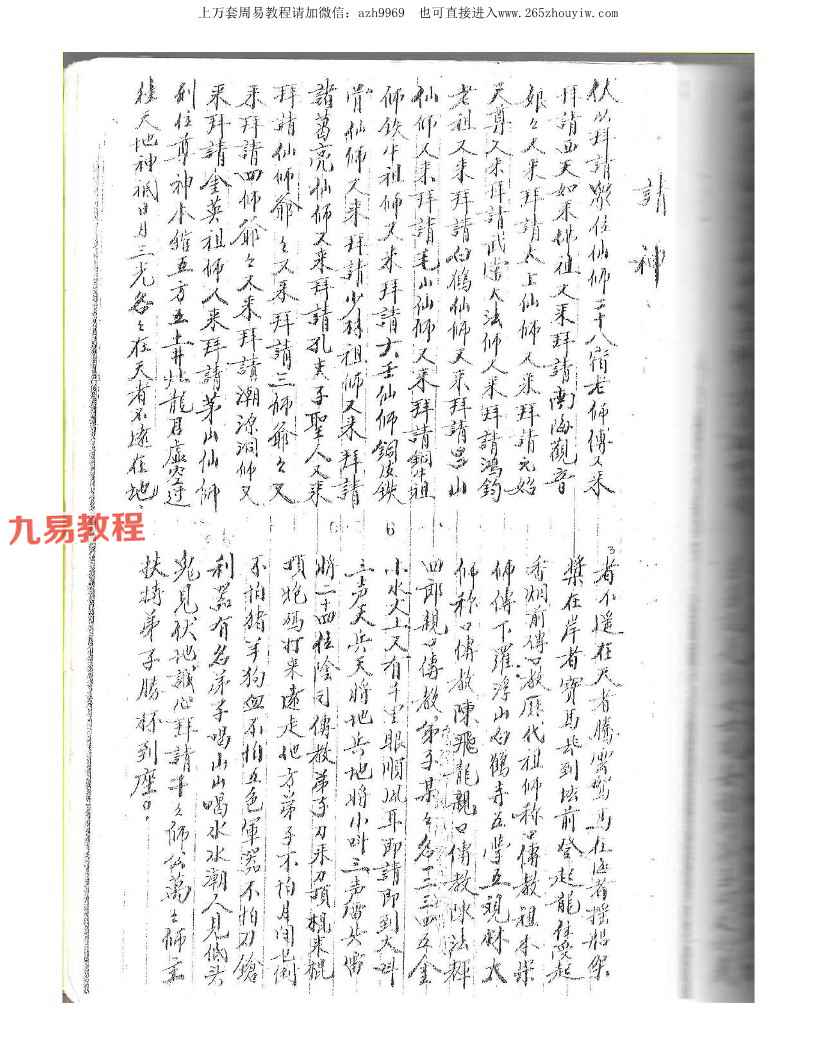 上万套周易教程请加微信: azh9969 也可直接进入www.265zhouyiw.com
請神
伏以拜請眾位仙师二十八宿老师傅又来
拜請西天如来佛祖又来拜請南海觀音
娘々又来拜請太上仙师又来拜請元始
天尊又来拜請武當大法师又来拜請鴻鈞
老祖又来拜請白鶴仙师又来拜請
山
仙师又来拜請毛山仙师又来拜請銅牛祖
师铁牛祖师又来拜請六壬仙师銅皮鉄
骨仙师又来拜請少林祖师又来拜請
諸葛亮仙师又来拜請孔夫子聖人又来
拜請仙师爺々又来拜請三师爺々又
来拜請四师爺々又来拜請潮源洞师又
来拜請金英祖师又来拜請茅山仙师
列位尊神本
五方五土井
龍君虚空过
往天地神祇日月三光各々在天者不
在地
6
3
者不
在天者騰雲駕馬在海者摇船
槳在岸者寶馬
到坛前登起龍位受起
香烟前傳口教历代祖师称口傳教祖本
师傳下羅浮山白鶴寺五
五
大
师称口傳教陳飛龍親口傳教陳法
四郎親口傳教弟子某々名一二三四五金
木水火土又有千里眼順风耳即請即到大叫
三声天兵天將地兵地將小叫三声雷兵雷
將二十四位陰司傳教弟子刀来刀頂棍来棍
頂炮码打来遠走他方弟子不怕月
不怕猪羊狗血不怕五色軍器不怕刀鎗
利器有名弟子喝山山
喝水水潮人見低头
鬼見伏地誠心拜請千々师公萬々师主
扶持弟子勝杯到座
九易教程